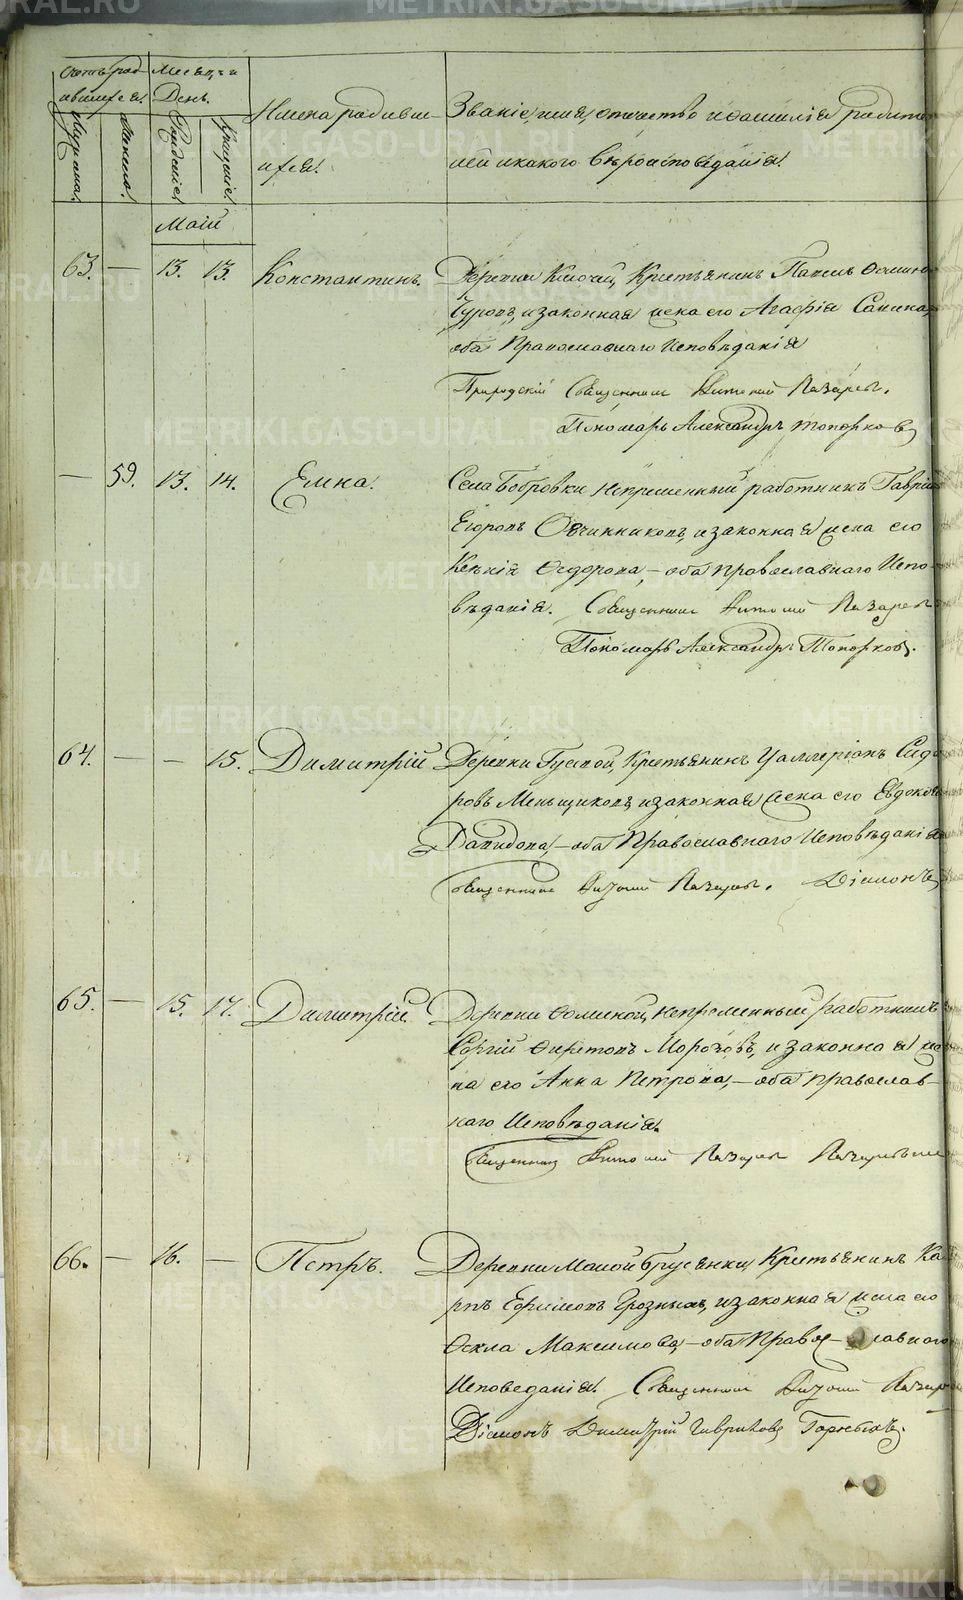 METRIKI.GASO-URAL.RU
Счетъ род-
ившихся.
Мужска.
Женска.
Месяцъ и
День.
Рожденiе
Крещенiе
Имена родивши-
ихся.
Званiе, имя, отчество и фамилiя родите-
лей и какого вѣроисповѣданiя.
Маiй
63. — 13. 13. Константинъ. Деревни Ключей, Крестьянинъ Павелъ
и законная жена его Агафiя Савина,
оба Православнаго Исповѣданiя
Священникъ Лазаревъ.
Пономарь Александръ Топорковъ
— 59. 13. 14. Елена. Села Бобровки непременный работникъ Гаврiилъ
Егоровъ Овчинниковъ, и законная жена его
Ксенiя Ѳедорова, — оба Православнаго Испо-
вѣданiя. Священникъ Лазаревъ
Пономарь Александръ Топорковъ.
64. — — 15. Димитрiй Деревни Крестьянинъ Сидо-
ровъ Меньщиковъ, и законная жена его Евдокiя
Давидова, — оба Православнаго Исповѣданiя
Священникъ Лазаревъ. Дiаконъ
65. — 15. 17. Димитрiй. Деревни Ѳоминой, непременный работникъ
Сергiй Морозовъ, и законная же-
на его Анна Петрова, — оба православ-
наго Исповѣданiя.
Священникъ Лазаревъ
66. — 16. — Петръ. Деревни Малой Брусянки, Крестьянинъ Ка-
рпъ Ефимовъ Грозныхъ, и законная жена его
Ѳекла Максимова, — оба Право-славнаго
Исповеданiя. Священникъ Лазаревъ
Дiаконъ Димитрiй Гавриловъ